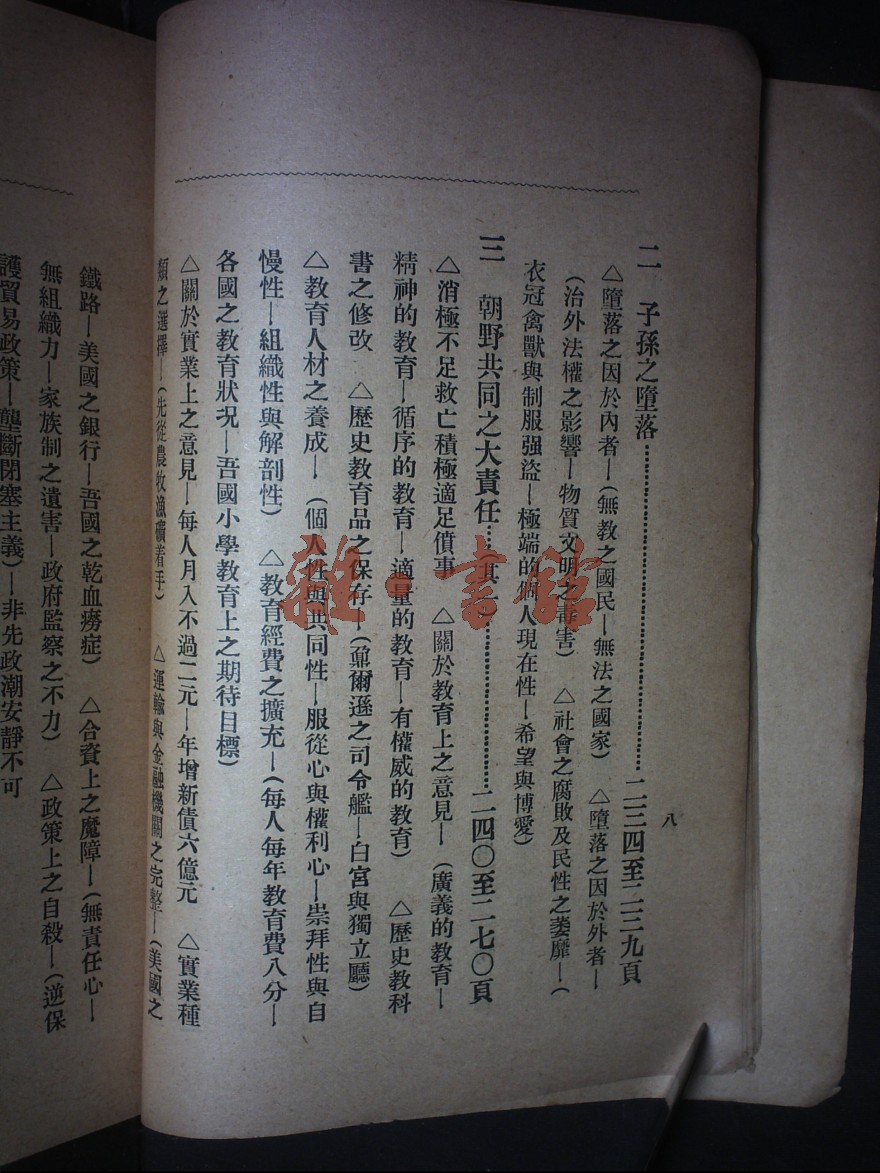 八
二 子孫之墮落……………………………二三四至二三九頁
△墮落之因於內者—(無教之國民—無法之國家) △墮落之因於外者—
(治外法權之影響—物質文明之毒害) △社會之腐敗及民性之萎靡—(
衣冠禽獸與制服强盜—極端的個人現在性—希望與博愛)
三 朝野共同之大責任…其一………………二四〇至二七〇頁
△消極不足救亡積極適足僨事 △關於教育上之意見—(廣義的教育—
精神的教育—循序的教育—適量的教育—有權威的教育) △歷史教科
書之修改 △歷史教育品之保存—(鼐爾遜之司令艦—白宮與獨立廳)
△教育人材之養成—(個人性與共同性—服從心與權利心—崇拜性與自
慢性—組織性與解剖性) △教育經費之擴充—(每人每年教育費八分—
各國之教育狀况—吾國小學教育上之期待目標)
△關於實業上之意見—每人月入不過二元—年增新債六億元 △實業種
類之選擇—(先從農牧漁礦着手) △運輸與金融機關之完整—(美國之
鐵路—美國之銀行—吾國之乾血癆症) △合資上之魔障—(無責任心—
無組織力—家族制之遺害—政府監察之不力) △政策上之自殺—(逆保
護貿易政策—壟斷閉塞主義)—非先政潮安靜不可
雜·書館